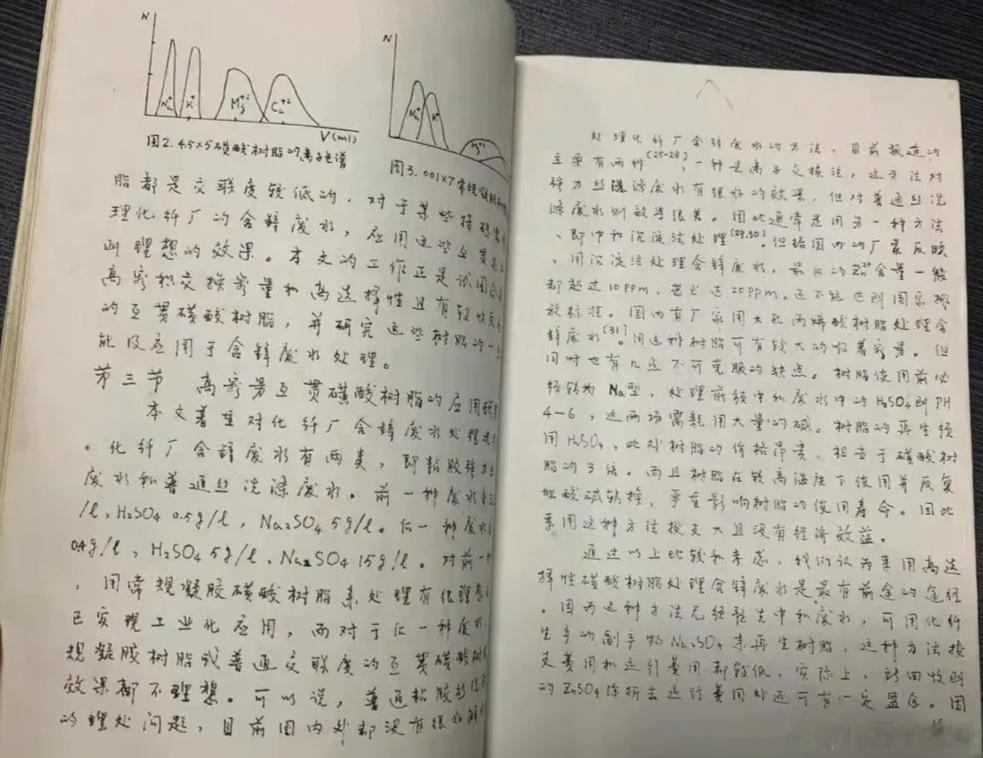 N
N
Na⁺
K⁺
Mg⁺²
Ca⁺²
V(ml)
Na⁺
K⁺
Mg⁺²
图2. 4.5×5碳酸树脂的离子色谱
图3. 001×7常规
脂都是交联度较低的，对于某些特殊
理化纤厂的含锌废水，应用这些互贯
则理想的效果。本文的工作正是试图
高容积交换容量和高选择性且有较
的互贯磺酸树脂，并研究这些树脂的一
能及应用于含锌废水处理。
第三节 高容量互贯磺酸树脂的应用
本文着重对化纤厂含锌废水处理
。化纤厂含锌废水有两类，即黏胶强力丝
废水和普通丝洗涤废水。前一种废水
/l, H₂SO₄ 0.5g/l，Na₂SO₄ 5g/l。后一种废水
0.4g/l，H₂SO₄ 5g/l，Na₂SO₄ 15g/l。对前一
，用常规凝胶磺酸树脂来处理有很理想
已实现工业化应用，而对于后一种废水
规凝胶树脂或普通交联度的互贯磺酸树
效果都不理想。可以说，普通粘胶丝
的理处问题，目前国内外都没有很好解
处理化纤厂含锌废水的方法，目前报道的
主要有两种[25-28]，一种是离子交换法，这方法对
强力丝洗涤废水有很好的效果，但对普通丝洗
涤废水则效果很差。因此通常是用另一种方法
、即中和沉淀法处理[29.30]。但据国内的厂家反映
，用沉淀法处理含锌废水，最后的Zn²⁺含量一般
都超过10ppm，甚至达20ppm。还不能达到国家排
放标准。国内有厂家用大孔丙烯酸树脂处理含
锌废水[31]。用这种树脂可有较大的吸着容量。但
同时也有几点不可克服的缺点。树脂使用前必
须转为Na型，处理前须中和废水中的H₂SO₄到PH
4-6，这两项需耗用大量的碱。树脂的再生须
用H₂SO₄，此外树脂的价格昂贵，相当于磺酸树
脂的3倍。而且树脂在较高温度下使用并反复
地酸碱转换，严重影响树脂的使用寿命。因此
采用这种方法投支大且没有经济效益。
通过以上比较和考虑，我们认为采用高选
择性磺酸树脂处理含锌废水是最有前途的途径
。因为这种方法无须预先中和废水，可用化纤
生产的副产物Na₂SO₄来再生树脂，这种方法投
支费用和运行费用都较低，实际上，新回收到
的ZnSO₄除折去运行费用处还可有一定盈余。因